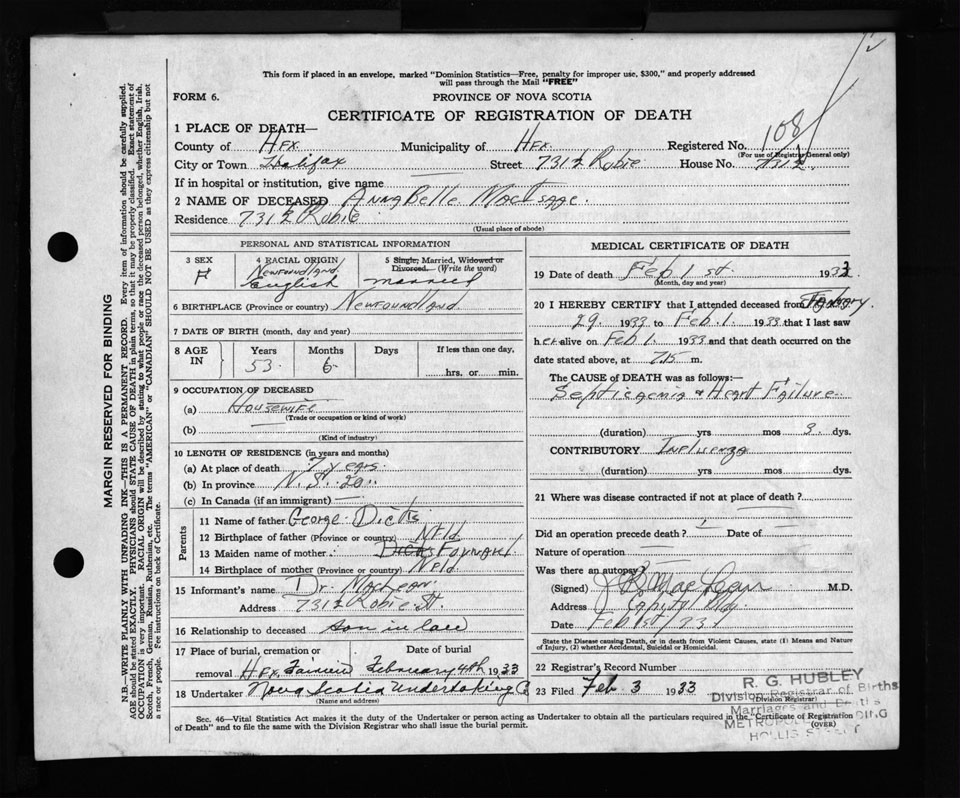 This form if placed in an envelope, marked "Dominion Statistics—Free, penalty for improper use, $300," and properly addressed
will pass through the Mail "FREE"
FORM 6.
PROVINCE OF NOVA SCOTIA
CERTIFICATE OF REGISTRATION OF DEATH
1 PLACE OF DEATH—
County of Hfx. Municipality of Hfx. Registered No. 108
(For use of Registrar General only)
City or Town Halifax Street 731½ Robie House No. 731½
If in hospital or institution, give name —
2 NAME OF DECEASED Annabelle MacIsaac.
Residence 731½ Robie
(Usual place of abode)
PERSONAL AND STATISTICAL INFORMATION
3 SEX
F
4 RACIAL ORIGIN
Newfoundland
English
5 Single, Married, Widowed or
Divorced. (Write the word)
married
6 BIRTHPLACE (Province or country) Newfoundland
7 DATE OF BIRTH (month, day and year)
8 AGE IN
Years 53. Months 6 Days
If less than one day,
hrs. or min.
9 OCCUPATION OF DECEASED
(a) Housewife
(Trade or occupation or kind of work)
(b) —
(Kind of industry)
10 LENGTH OF RESIDENCE (in years and months)
(a) At place of death 7 years.
(b) In province N.S. 20 "
(c) In Canada (if an immigrant) —
Parents
11 Name of father George
12 Birthplace of father (Province or country) Nfld
13 Maiden name of mother
14 Birthplace of mother (Province or country) Nfld
15 Informant's name Dr. MacLean
Address 731½ Robie St.
16 Relationship to deceased son in law
17 Place of burial, cremation or
removal Hfx. Fairview
Date of burial
February 4th 1933
18 Undertaker Nova Scotia Undertaking Co
(Name and address)
MEDICAL CERTIFICATE OF DEATH
19 Date of death Feb 1st 1933
(Month, day and year)
20 I HEREBY CERTIFY that I attended deceased from
29 1933 to Feb. 1. 1933 that I last saw
her alive on Feb 1. 1933 and that death occurred on the
date stated above, at 7.15 m.
The CAUSE OF DEATH was as follows:—
Septicaemia & Heart Failure.
(duration) yrs mos 3 dys.
CONTRIBUTORY Influenza
(duration) yrs mos dys.
21 Where was disease contracted if not at place of death?
Did an operation precede death? — Date of —
Nature of operation —
Was there an autopsy? —
(Signed) MacLean M.D.
Address Capitol Bldg
Date Feb 1st /33
State the Disease causing Death, or in death from Violent Causes, state (1) Means and Nature
of Injury, (2) whether Accidental, Suicidal or Homicidal.
22 Registrar's Record Number
23 Filed Feb 3 1933
(Division Registrar)
R. G. HUBLEY
Division Registrar of Births
Marriages and Deaths
HOLLIS STREET
Sec. 46—Vital Statistics Act makes it the duty of the Undertaker or person acting as Undertaker to obtain all the particulars required in the "Certificate of Registration
of Death" and to file the same with the Division Registrar who shall issue the burial permit.
(OVER)
MARGIN RESERVED FOR BINDING
N.B.—WRITE PLAINLY WITH UNFADING INK—THIS IS A PERMANENT RECORD. Every item of information should be carefully supplied.
AGE should be stated EXACTLY. PHYSICIANS should STATE CAUSE OF DEATH in plain terms, so that it may be properly classified. Exact statement of
OCCUPATION is very important. RACIAL ORIGIN will be described by stating to what people or race the deceased person belonged, whether English, Irish,
Scotch, French, German, Russian, Ruthenian, etc. The terms "AMERICAN" or "CANADIAN" SHOULD NOT BE USED as they express citizenship but not
a race or people. See instructions on back of Certificate.